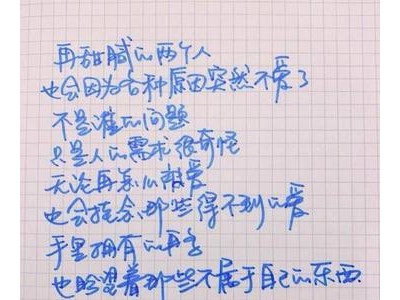 再甜腻的两个人
也会因为各种原因突然不爱了
不是谁的问题
只是人的需求很奇怪
无论再怎么被爱
也会惦念那些得不到的爱
手里拥有的再多
也盼望着那些不属于自己的东西